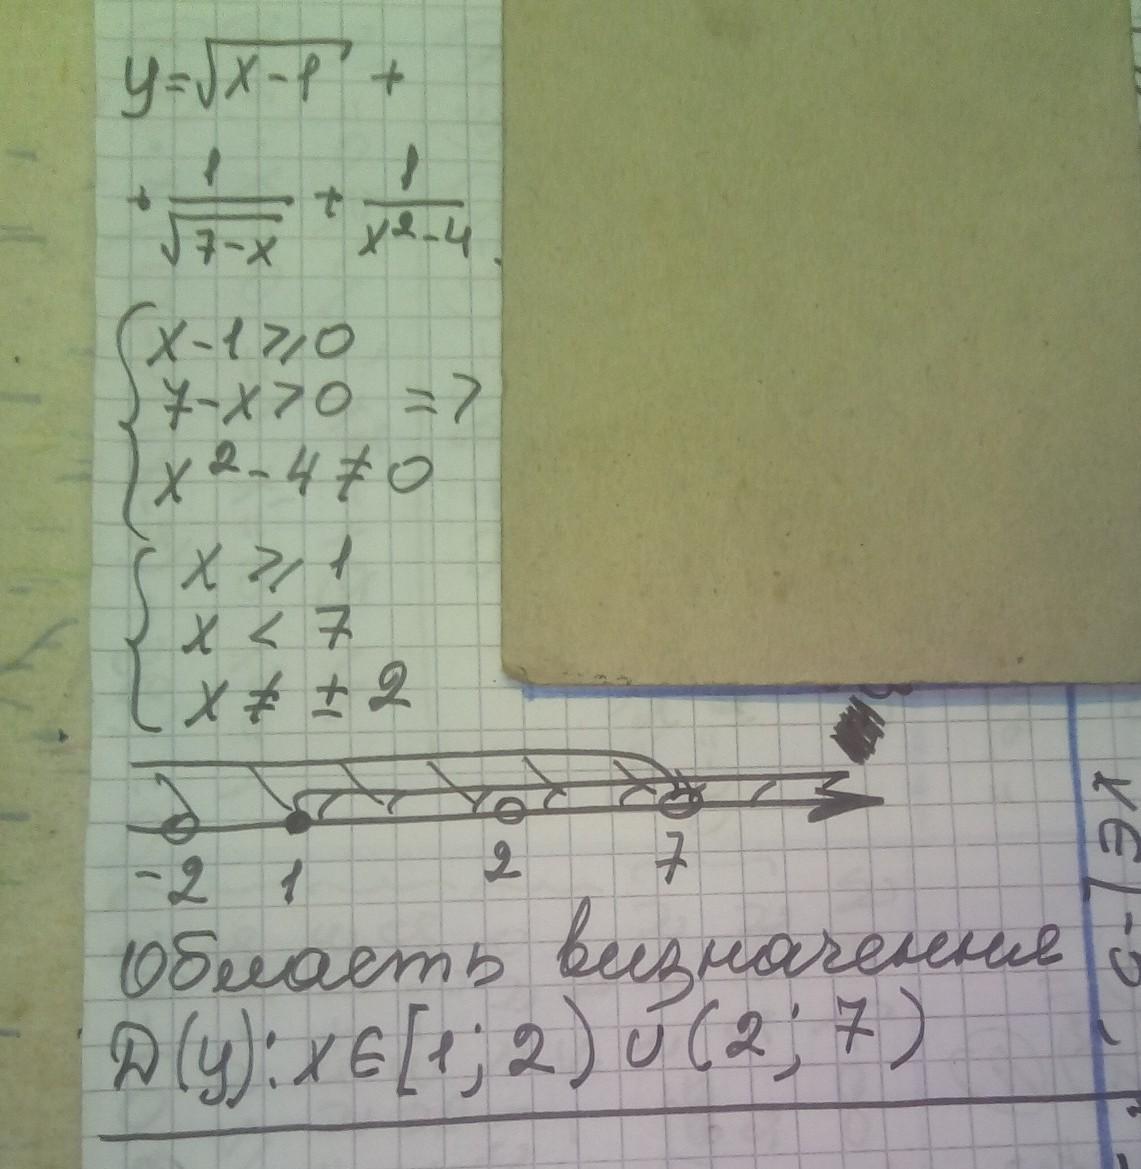 y = √x-1 +
+ 1/√7-x + 1/x²-4
{ x-1 ⩾ 0
7-x > 0 =>
x²-4 ≠ 0
{ x ⩾ 1
x < 7
x ≠ ± 2
-2 1 2 7
Область визначення
D(y): x∈[1; 2) ∪ (2; 7)